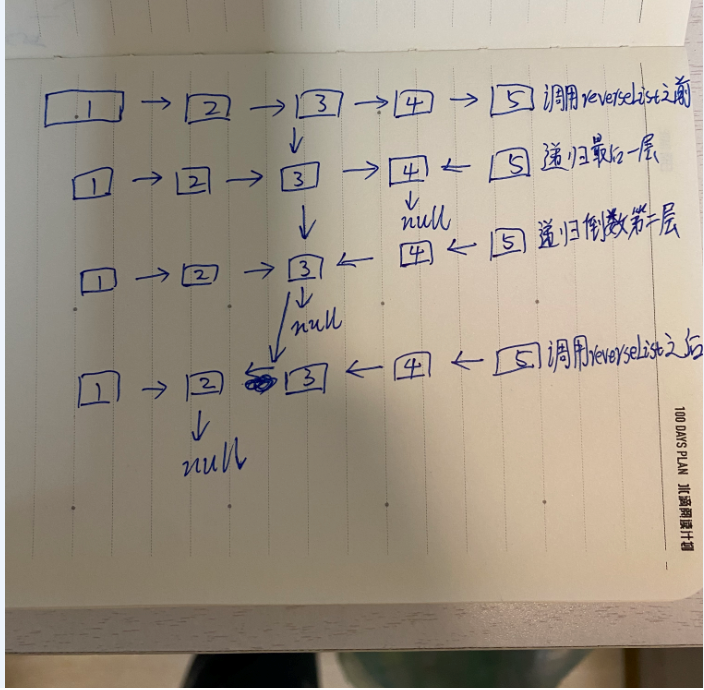 1 → 2 → 3 → 4 → 5 调用reverseList之前
1 → 2 → 3 → 4 ← 5 递归最后一层
null
1 → 2 → 3 ← 4 ← 5 递归倒数第二层
null
1 → 2 ← 3 ← 4 ← 5 调用reverseList之后
null
100 DAYS PLAN 水滴阅读计划